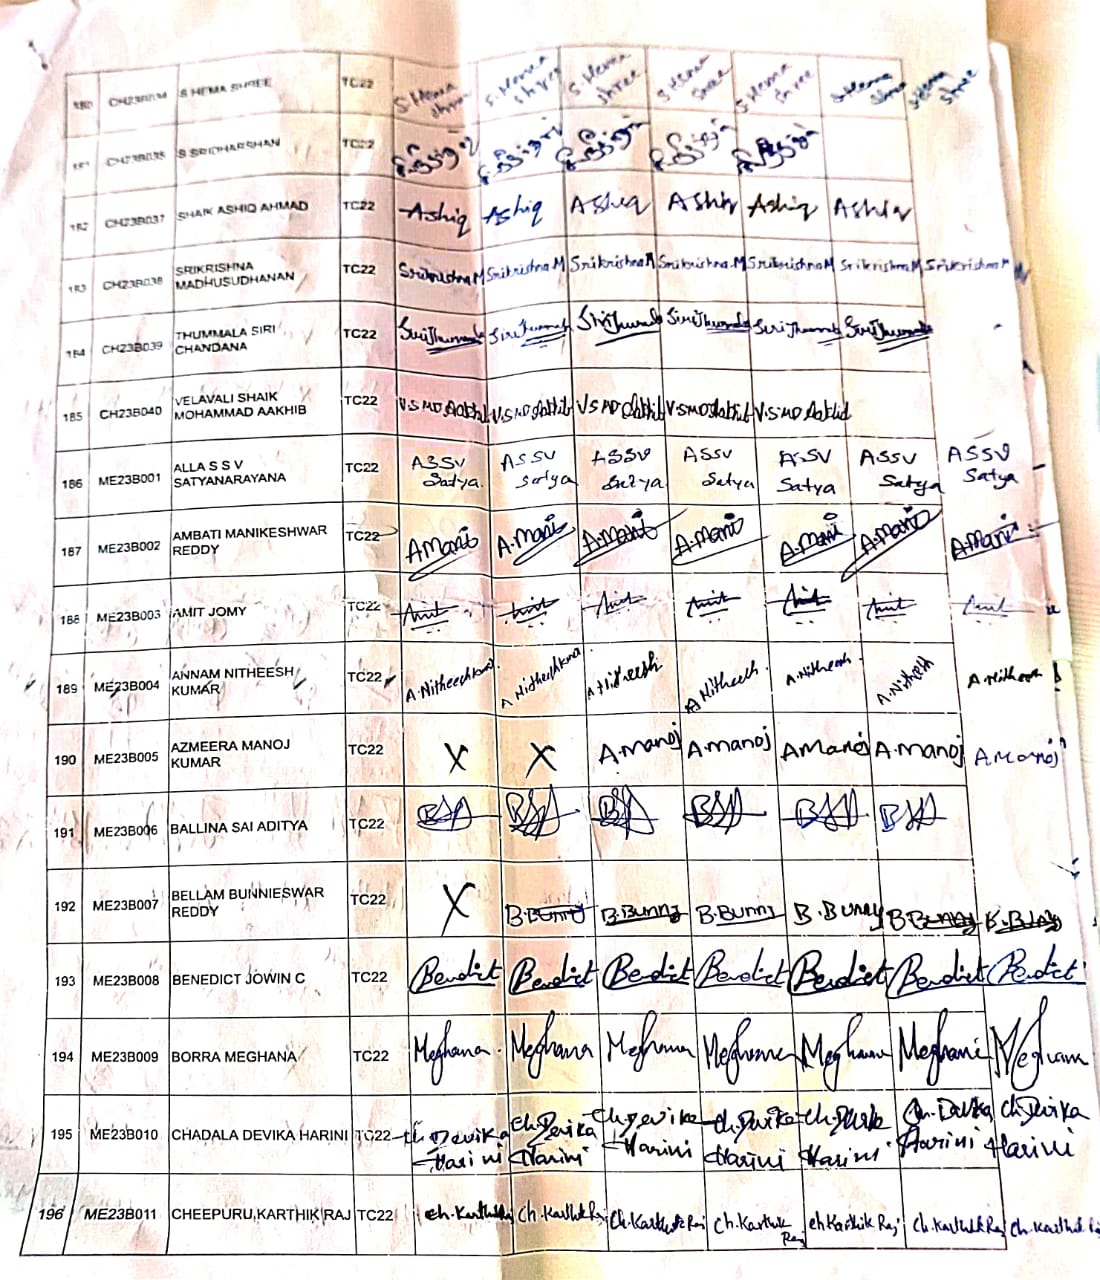 180 CH23B034 S HEMA SHREE TC22 S.Hema Shree S.Hema Shree S.Hema Shree S.Hema Shree S.Hema Shree S.Hema Shree S.Hema Shree
181 CH23B035 S SRIDHARSHAN TC22
182 CH23B037 SHAIK ASHIQ AHMAD TC22 Ashiq Ashiq Ashiq Ashiq Ashiq Ashiq
183 CH23B038 SRIKRISHNA MADHUSUDHANAN TC22 Srikrishna M Srikrishna M Srikrishna M Srikrishna.M Srikrishna M Srikrishna M Srikrishna M
184 CH23B039 THUMMALA SIRI CHANDANA TC22
185 CH23B040 VELAVALI SHAIK MOHAMMAD AAKHIB TC22 V.S MD Aakhib V.S MD Aakhib V.S MD Aakhib V.S MD Aakhib V.S MD Aakhib
186 ME23B001 ALLA S S V SATYANARAYANA TC22 ASSV Satya. ASSV Satya ASSV Satya ASSV Satya ASSV Satya ASSV Satya ASSV Satya
187 ME23B002 AMBATI MANIKESHWAR REDDY TC22 A.Mani A.Mani A.Mani A.Mani A.Mani A.Mani A.Mani
188 ME23B003 AMIT JOMY TC22 Amit Amit Amit Amit Amit Amit Amit
189 ME23B004 ANNAM NITHEESH KUMAR TC22 A.Nitheesh A.Nitheesh A.Nitheesh A.Nitheesh A.Nitheesh A.Nitheesh
190 ME23B005 AZMEERA MANOJ KUMAR TC22 X X A.Manoj A.Manoj A.Manoj A.Manoj A.Manoj
191 ME23B006 BALLINA SAI ADITYA TC22 BSA BSA BSA BSA BSA BSA
192 ME23B007 BELLAM BUNNIESWAR REDDY TC22 X B.Bunny B.Bunny B.Bunny B.Bunny B.Bunny B.Bunny
193 ME23B008 BENEDICT JOWIN C TC22 Benedict Benedict Benedict Benedict Benedict Benedict Benedict
194 ME23B009 BORRA MEGHANA TC22 Meghana Meghana Meghana Meghana Meghana Meghana Meghana
195 ME23B010 CHADALA DEVIKA HARINI TC22 Ch Devika Harini Ch.Devika Harini Ch.Devika Harini Ch.Devika Harini Ch.Devika Harini Ch.Devika Harini Ch.Devika Harini
196 ME23B011 CHEEPURU KARTHIK RAJ TC22 Ch.Karthik Raj Ch.Karthik Raj Ch.Karthik Raj Ch.Karthik Raj Ch Karthik Raj Ch.Karthik Raj Ch.Karthik Raj